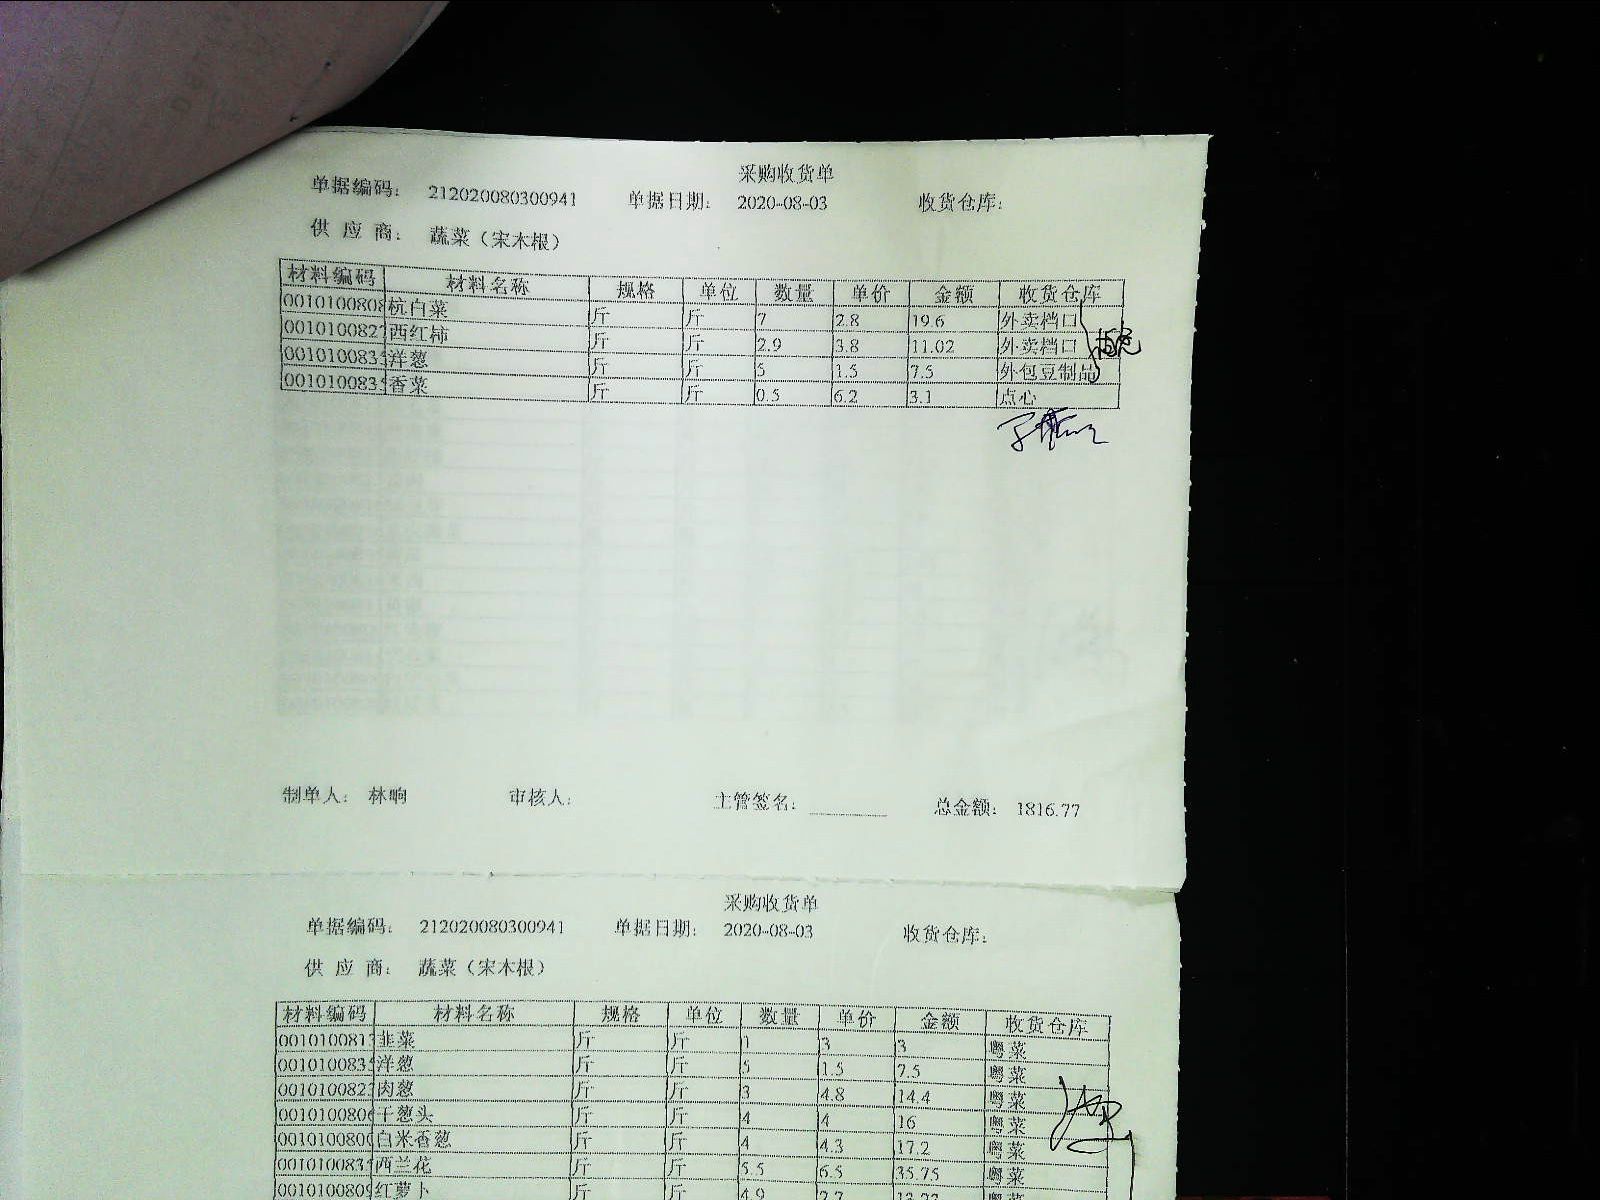 采购收货单
单据编码： 212020080300941 单据日期： 2020-08-03 收货仓库：
供 应 商： 蔬菜（宋木根）
材料编码 材料名称 规格 单位 数量 单价 金额 收货仓库
0010100808 杭白菜 斤 斤 7 2.8 19.6 外卖档口
001010082 西红柿 斤 斤 2.9 3.8 11.02 外卖档口
001010083 洋葱 斤 斤 5 1.5 7.5 外包豆制品
001010083 香菜 斤 斤 0.5 6.2 3.1 点心
制单人： 林响 审核人： 主管签名： 总金额： 1816.77
采购收货单
单据编码： 212020080300941 单据日期： 2020-08-03 收货仓库：
供 应 商： 蔬菜（宋木根）
材料编码 材料名称 规格 单位 数量 单价 金额 收货仓库
001010081 韭菜 斤 斤 1 3 3 粤菜
001010083 洋葱 斤 斤 5 1.5 7.5 粤菜
001010082 肉葱 斤 斤 3 4.8 14.4 粤菜
001010080 干葱头 斤 斤 4 4 16 粤菜
001010080 白米香葱 斤 斤 4 4.3 17.2 粤菜
001010083 西兰花 斤 斤 5.5 6.5 35.75 粤菜
001010080 红萝卜 斤 斤 4.9 2.7 13.23 粤菜